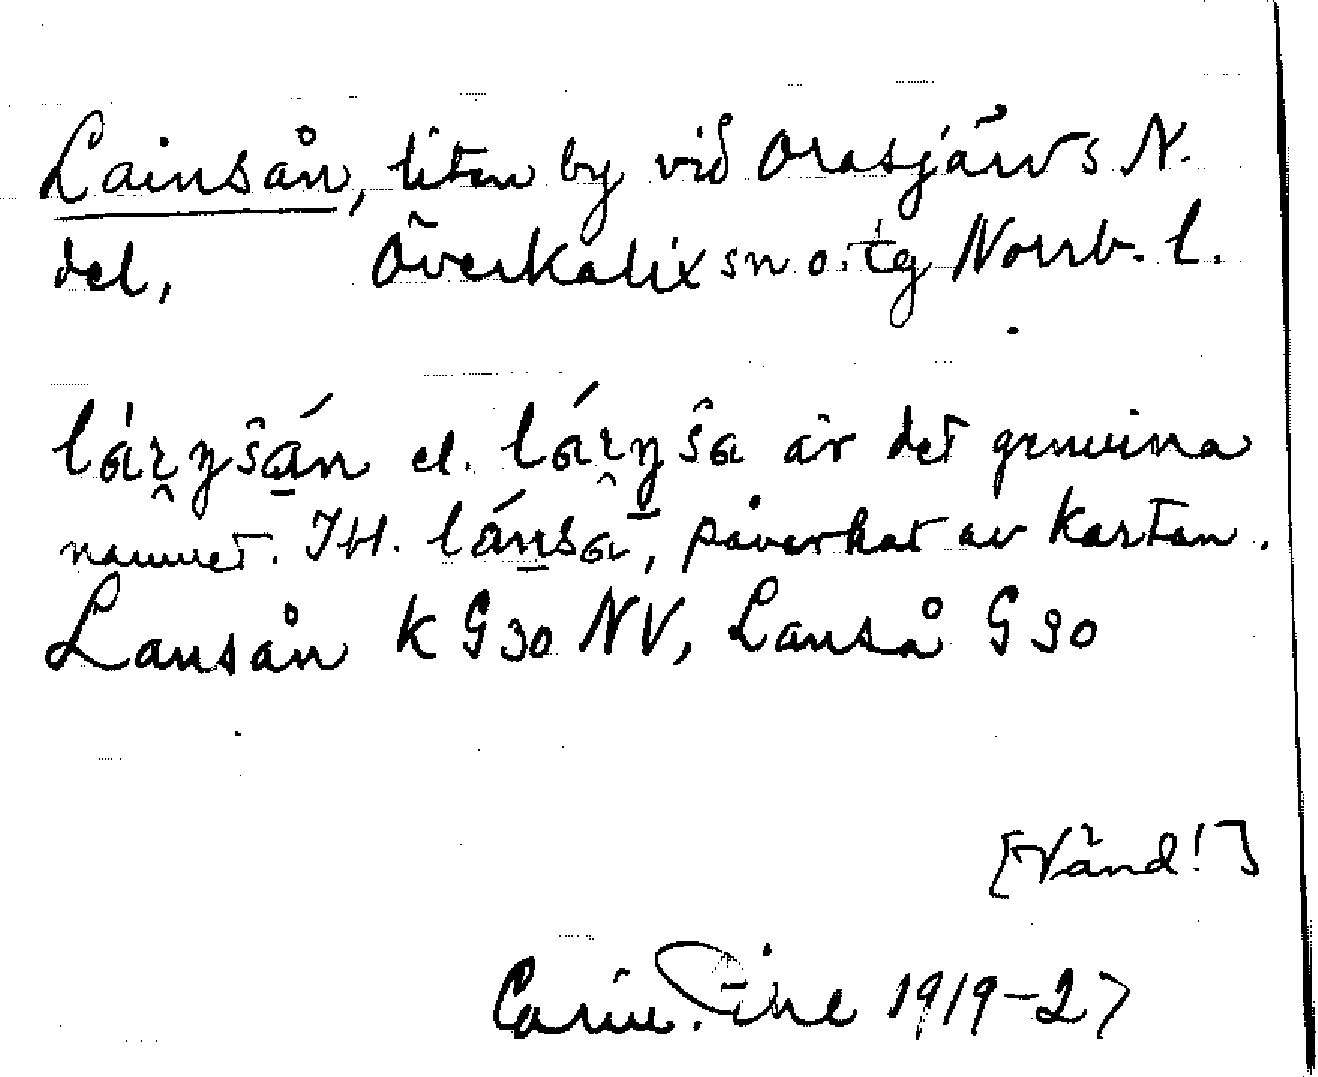 Lainsån, liten by vid Orasjärvs N.
del, Överkalix sn o. tg Norrb. l.
el. är det genuina
namnet. påverkat av kartan.
Lansån K G30 NV, Lanså G30
[Vänd!]
Carin Pihl 1919-27